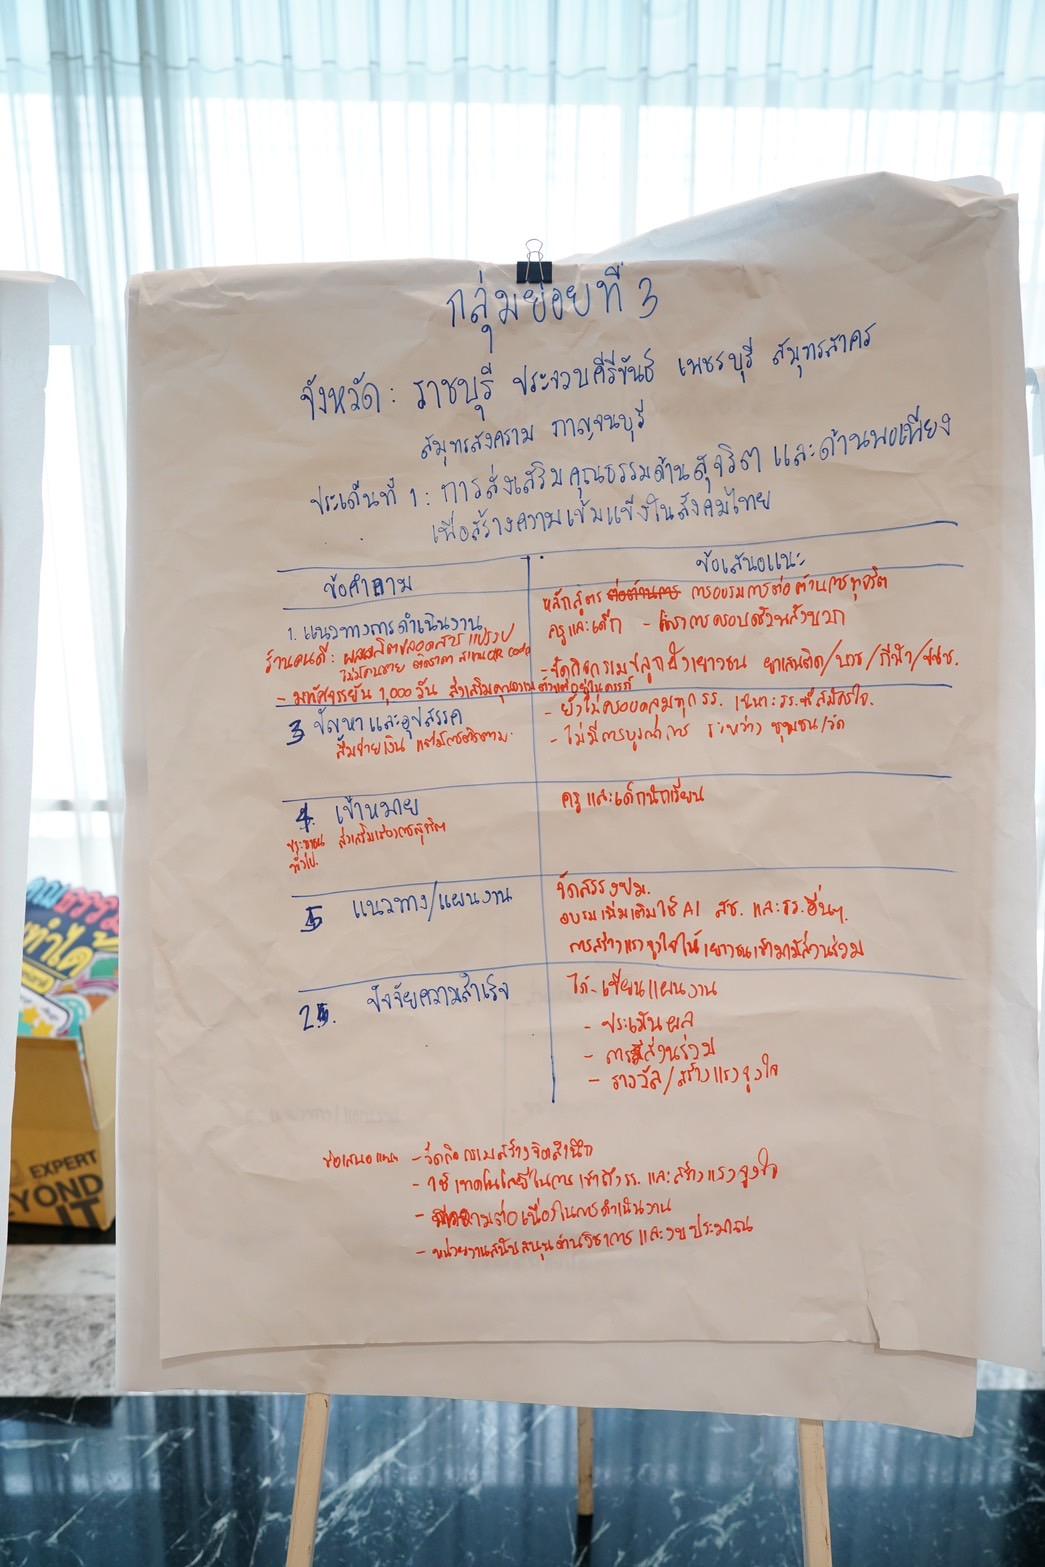 กลุ่มย่อยที่ 3
จังหวัด : ราชบุรี ประจวบคีรีขันธ์ เพชรบุรี สมุทรสาคร
สมุทรสงคราม กาญจนบุรี
ประเด็นที่ 1 : การส่งเสริมคุณธรรมด้านสุจริต และด้านพอเพียง
เพื่อสร้างความเข้มแข็งในสังคมไทย
ข้อคำถาม
ข้อเสนอแนะ
1. แนวทางการดำเนินงาน
ร้านคนดี : ผลผลิตปลอดสารแปรรูป
ไม่มีคนขาย ติดราคา สแกน QR code
- มหัศจรรย์ 1,000 วัน ส่งเสริมคุณธรรม ตั้งแต่อยู่ในครรภ์
หลักสูตร ต่อต้านการ การอบรมการต่อต้านการทุจริต
ครูและเด็ก - โครงการครอบครัวพลังบวก
- จัดกิจกรรมปลูกฝังเยาวชน ยาเสพติด/บวช/กีฬา/
3 ปัญหาและอุปสรรค
สิ้นจ่ายเงิน แต่ไม่การติดตาม.
- ยังไม่ครอบคลุมทุก รร. เฉพาะ รร.ที่สมัครใจ.
- ไม่มีการบูรณาการ ระหว่าง ชุมชน/วัด
4. เป้าหมาย
ประชาชน ส่งเสริมเรื่องการสุจริต
ทั่วไป.
ครู และเด็กนักเรียน
5 แนวทาง/แผนงาน
จัดสรรงปม.
อบรมเพิ่มเติมใช้ AI สช. และ รร.อื่นๆ.
การสร้างแรงจูงใจให้เยาวชนเข้ามามีส่วนร่วม
2. ปัจจัยความสำเร็จ
ได้ - เขียนแผนงาน
- ประเมินผล
- การมีส่วนร่วม
- รางวัล/สร้างแรงจูงใจ
ข้อเสนอแนะ - จัดกิจกรรมสร้างจิตสำนึก
- ใช้เทคโนโลยีในการเข้าถึง รร. และสร้างแรงจูงใจ
- ความต่อเนื่องในการดำเนินงาน
- หน่วยงานสนับสนุนด้านวิชาการ และงบประมาณ
ทำได้
EXPERT
BEYOND
IT